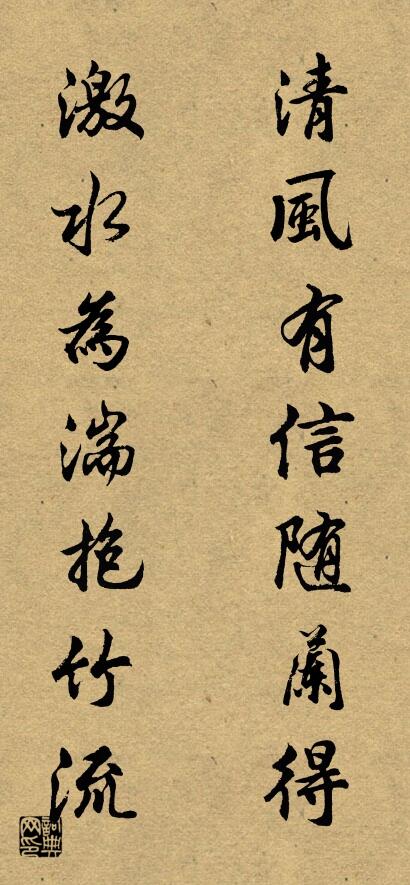 清風有信随蘭得
激水為湍抱竹流